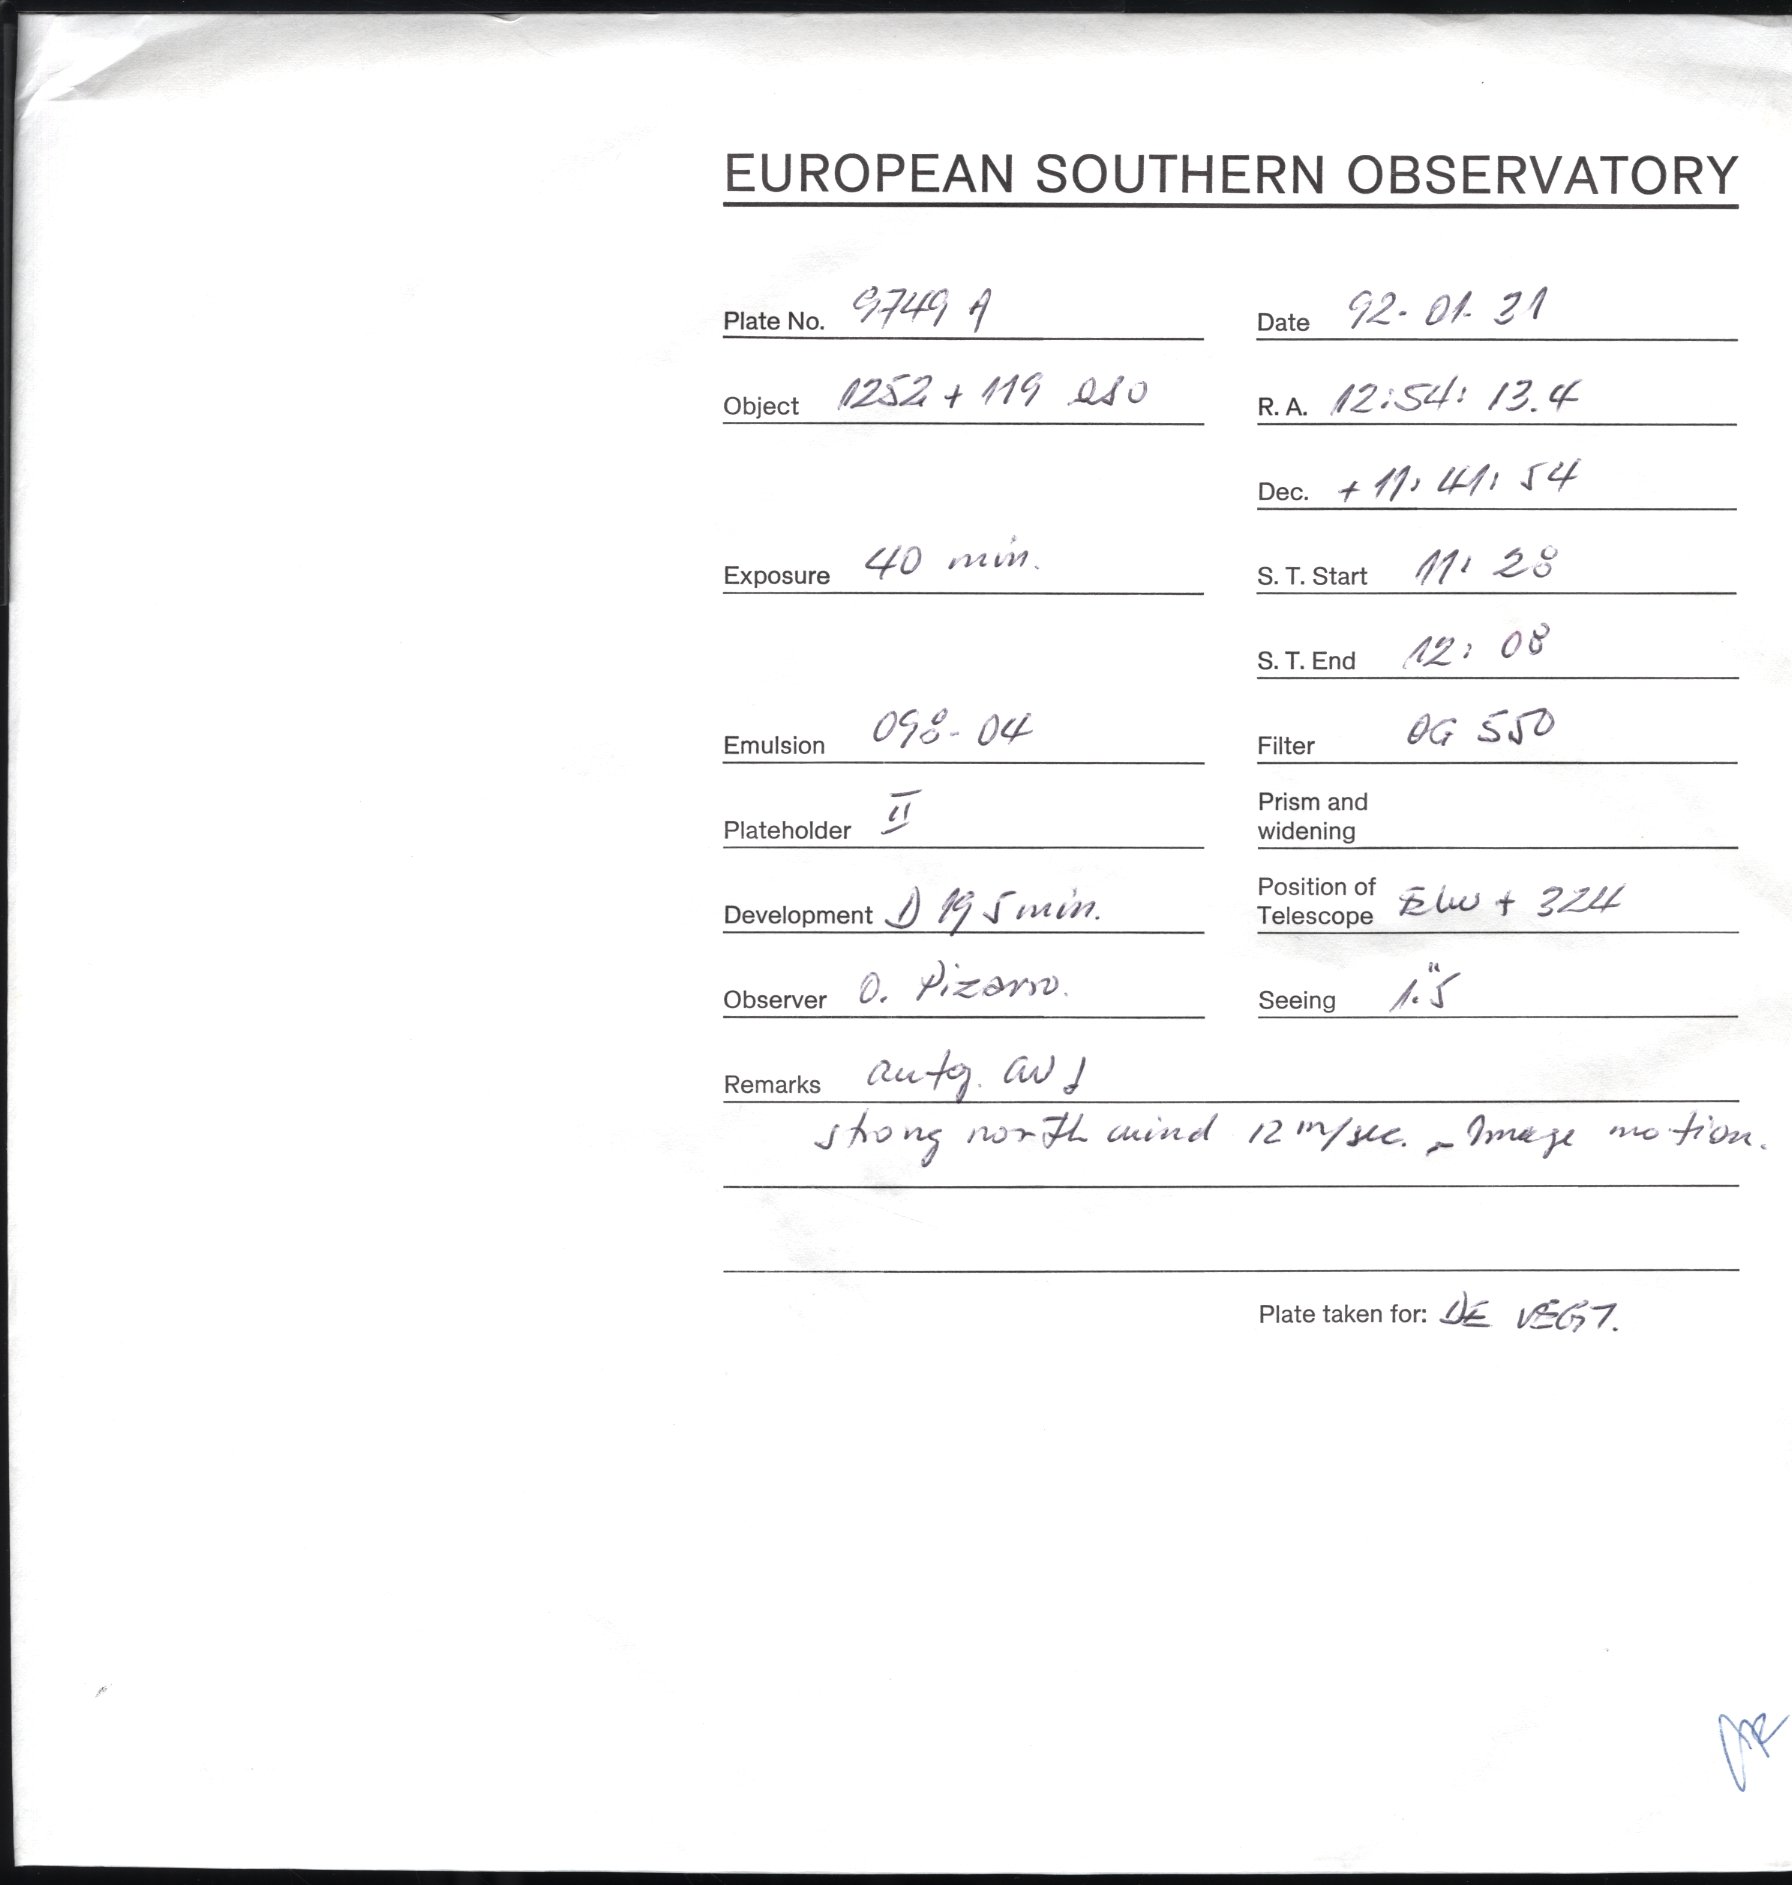 EUROPEAN SOUTHERN OBSERVATORY
Plate No. 9749 A
Date 92-01-31
Object 1252 + 119 QSO
R. A. 12:54: 13.4
Dec. + 11: 41: 54
Exposure 40 min.
S. T. Start 11: 28
S. T. End 12: 08
Emulsion 098-04
Filter OG 550
Plateholder II
Prism and
widening
Development D 19 5 min.
Position of
Telescope + 324
Observer O. Pizarro.
Seeing 1."5
Remarks autog.
strong north wind 12 m/sec. - Image motion.
Plate taken for: DE VEGT.